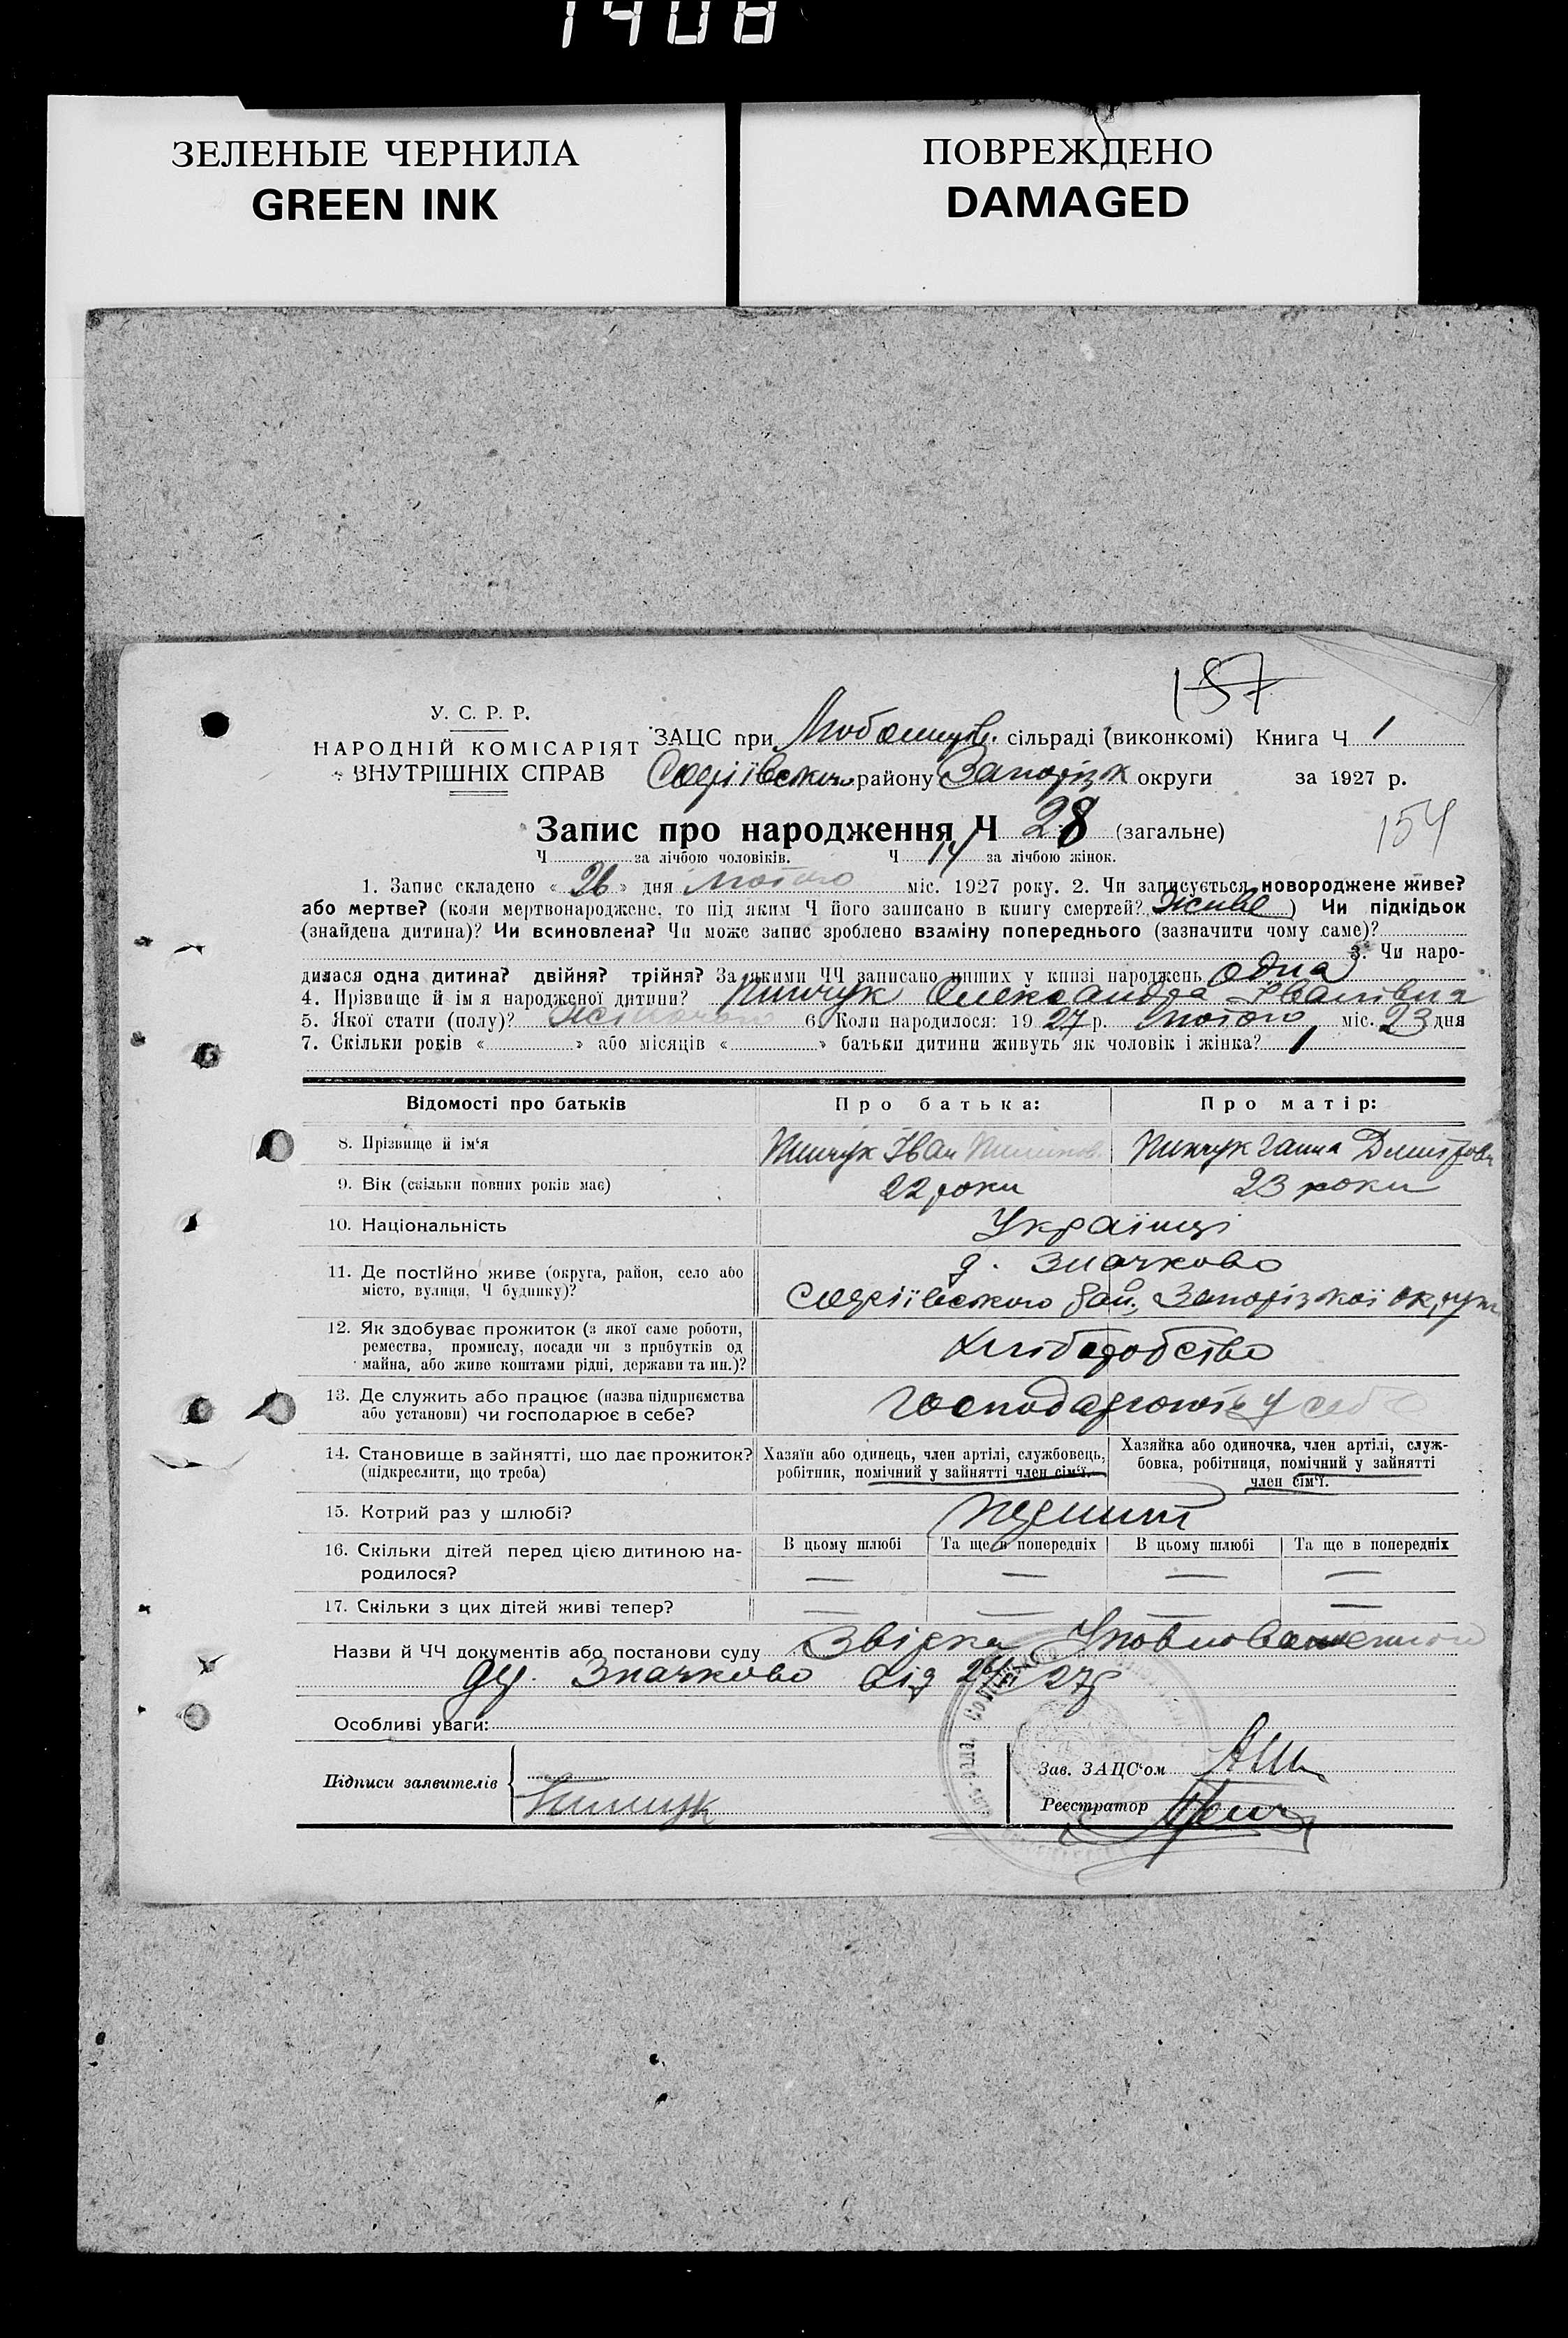 1408
ЗЕЛЕНЫЕ ЧЕРНИЛА
GREEN INK
ПОВРЕЖДЕНО
DAMAGED
157
У. С. Р. Р.
НАРОДНІЙ КОМІСАРІЯТ
ВНУТРІШНІХ СПРАВ
ЗАЦС при сільраді (виконкомі) Книга Ч 1
Софіївського району Запоріжж округи за 1927 р.
Запис про народження Ч 28 (загальне)
154
Ч за лічбою чоловіків. Ч 14 за лічбою жінок.
1. Запис складено « 26 » дня Лютого міс. 1927 року. 2. Чи записується новороджене живе?
або мертве? (коли мертвонароджене, то під яким Ч його записано в книгу смертей? живе ) Чи підкідьок
(знайдена дитина)? Чи всиновлена? Чи може запис зроблено взаміну попереднього (зазначити чому саме)?
3. Чи наро-
дилася одна дитина? двійня? трійня? За якими ЧЧ записано инших у книзі народжень одна
4. Прізвище й ім'я народженої дитини? Олександра Іванівна
5. Якої стати (полу)? жіночого 6. Коли народилося: 19 27 р. Лютого міс. 23 дня
7. Скільки років « » або місяців « » батьки дитини живуть як чоловік і жінка? 1
Відомості про батьків
Про батька:
Про матір:
8. Прізвище й ім'я
Іван
Ганна
9. Вік (скільки повних років має)
22 роки
23 роки
10. Національність
Українці
11. Де постійно живе (округа, район, село або
місто, вулиця, Ч будинку)?
д. Значково
Софіївського рай. Запорізької округи
12. Як здобуває прожиток (з якої саме роботи,
ремества, промислу, посади чи з прибутків од
майна, або живе коштами рідні, держави та ин.)?
Хліборобство
13. Де служить або працює (назва підприємства
або установи) чи господарює в себе?
господарюють у себе
14. Становище в зайнятті, що дає прожиток?
(підкреслити, що треба)
Хазяїн або одинець, член артілі, службовець,
робітник, помічний у зайнятті член сім'ї.
Хазяйка або одиночка, член артілі, служ-
бовка, робітниця, помічний у зайнятті
член сім'ї.
15. Котрий раз у шлюбі?
перший
16. Скільки дітей перед цією дитиною на-
родилося?
В цьому шлюбі
Та ще в попередніх
В цьому шлюбі
Та ще в попередніх
— — — —
17. Скільки з цих дітей живі тепер?
— — — —
Назви й ЧЧ документів або постанови суду Звідка
Значково від 27р
Особливі уваги:
Підписи заявителів
Зав. ЗАЦС'ом
Реєстратор